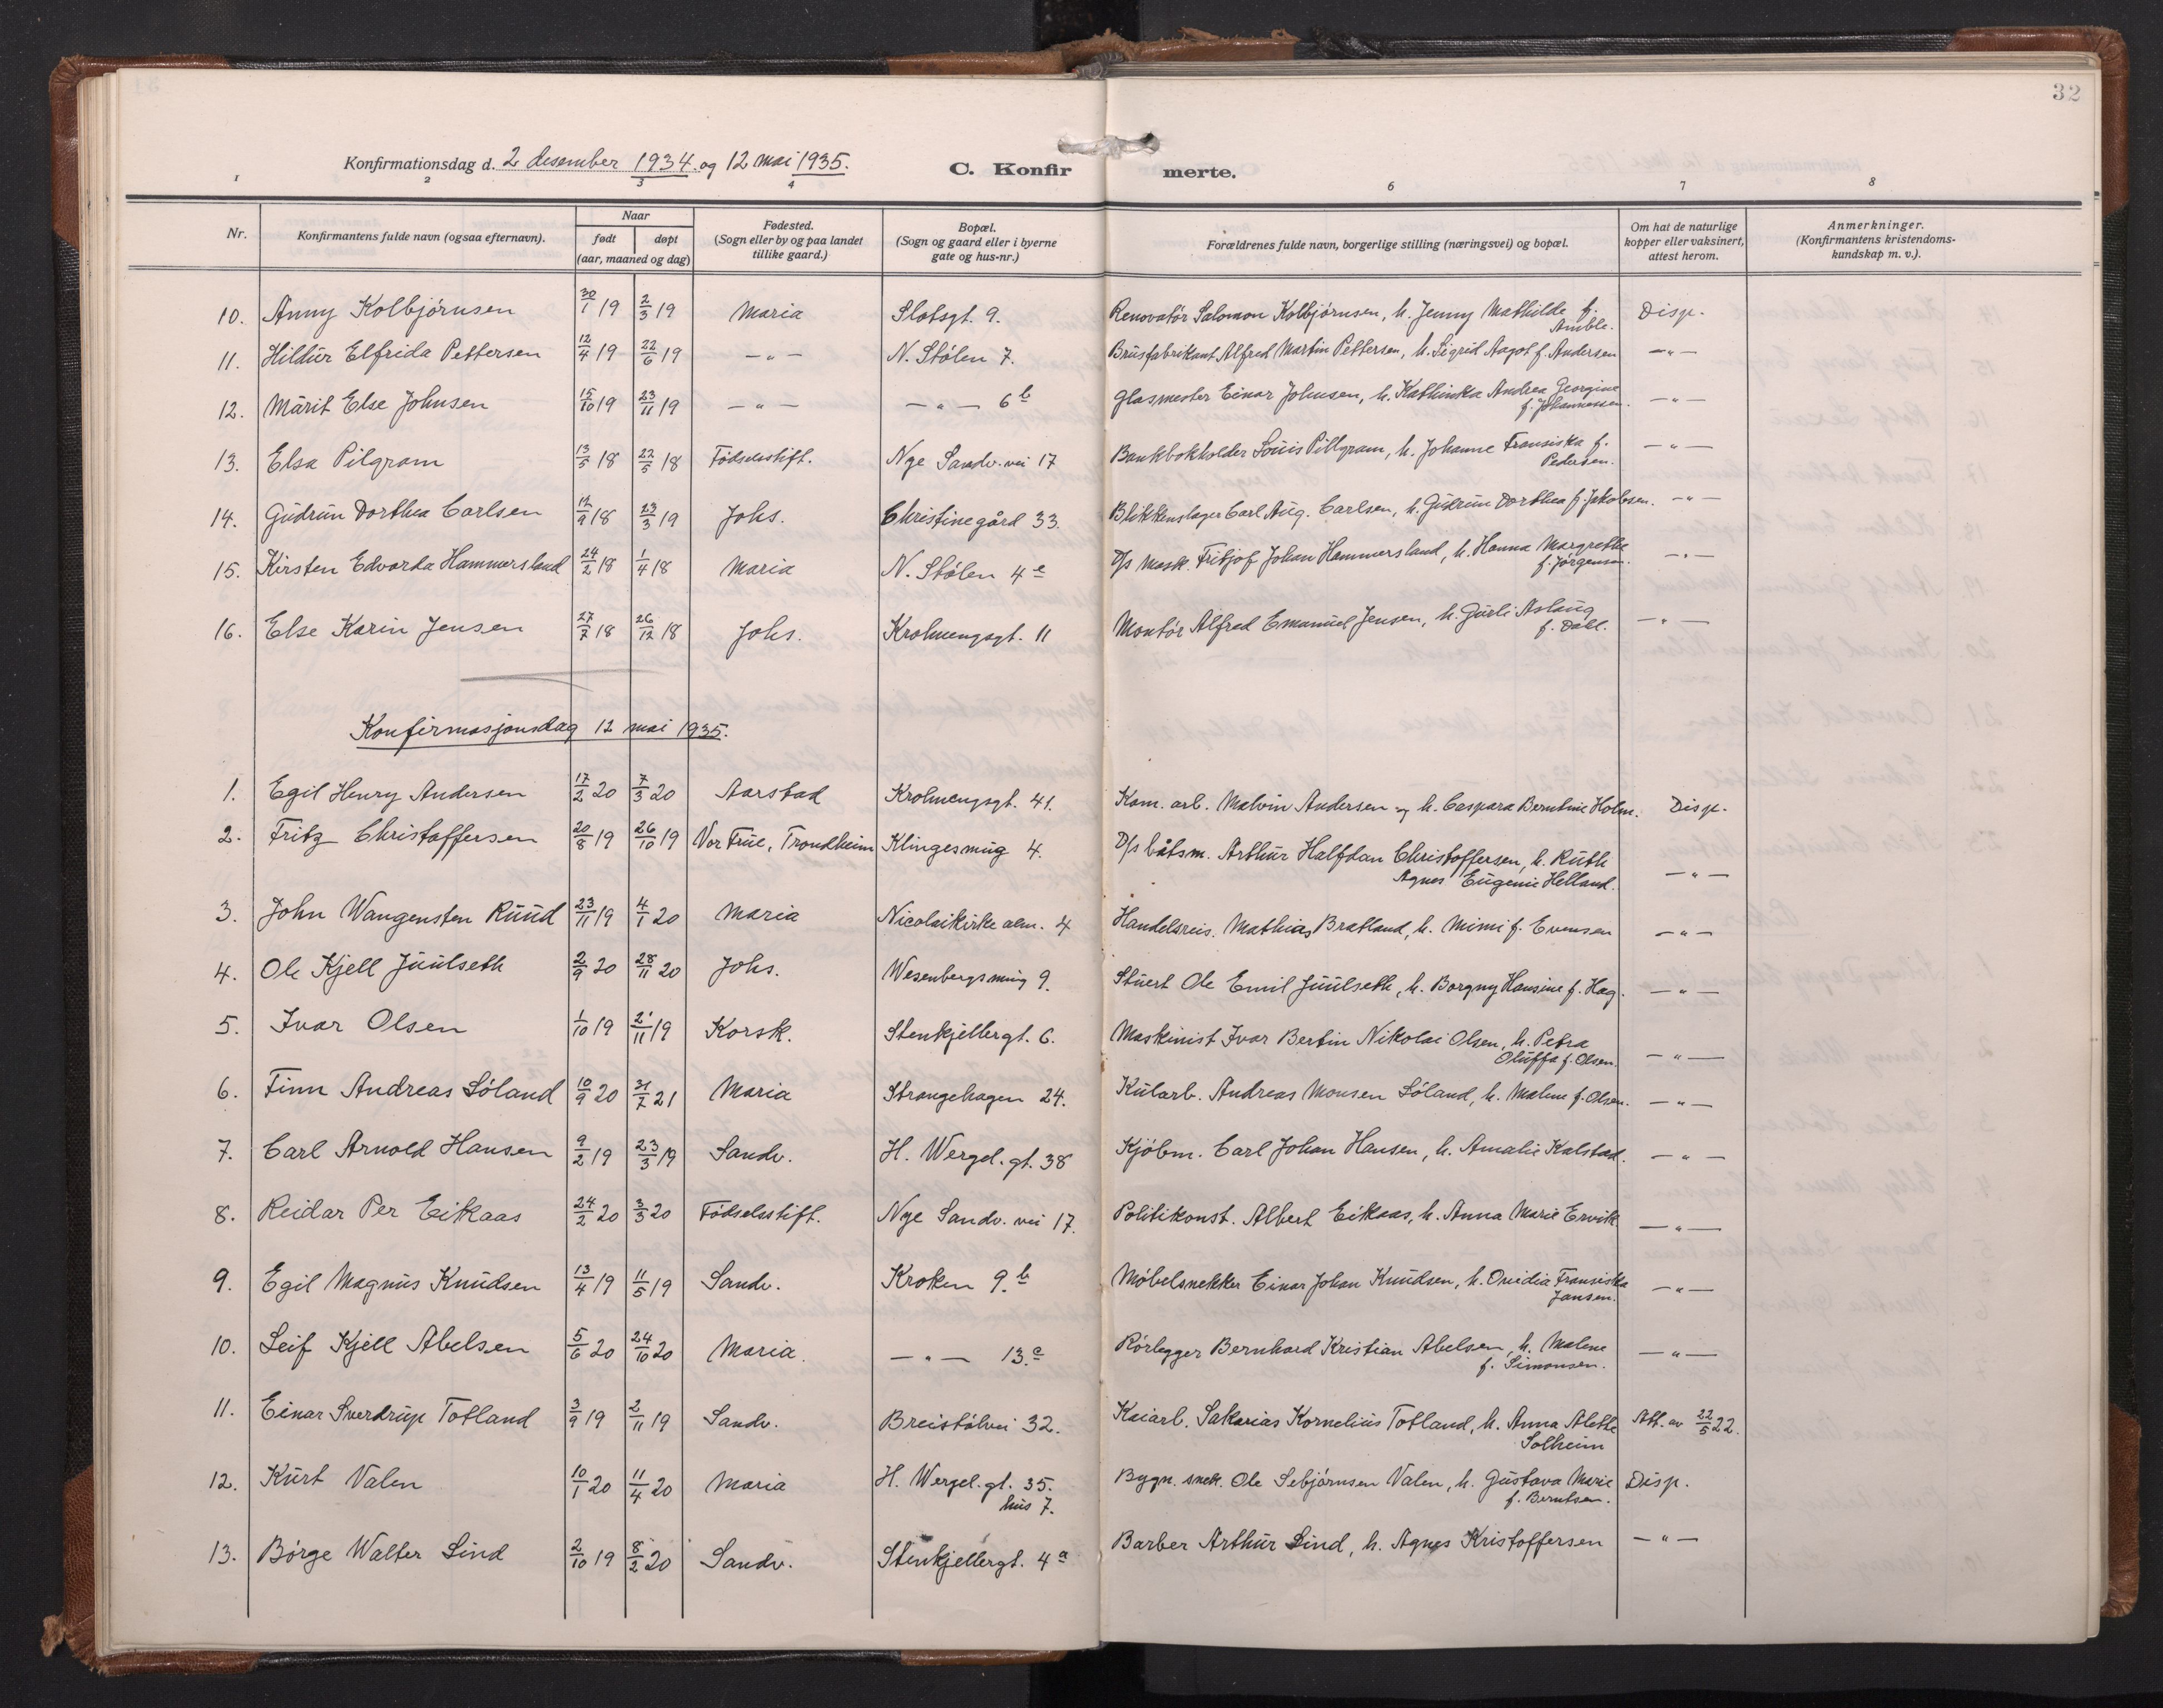 32
Konfirmationsdag d. 2 desember 1934 og 12 mai 1935.
C. Konfirmerte.
1 2 3 4 6 7 8
Nr. | Konfirmantens fulde navn (ogsaa efternavn). | Naar født døpt (aar, maaned og dag) | Fødested. (Sogn eller by og paa landet tillike gaard.) | Bopæl. (Sogn og gaard eller i byerne gate og hus-nr.) | Forældrenes fulde navn, borgerlige stilling (næringsvei) og bopæl. | Om hat de naturlige kopper eller vaksinert, attest herom. | Anmerkninger. (Konfirmantens kristendoms-kundskap m. v.).
10. Anny Kolbjørnsen 30/1 19 2/3 19 Maria Slotsgt. 9. Renovatør Salomon Kolbjørnsen, h. Jenny Mathilde f. Amble. Disp.
11. Hildur Elfrida Pettersen 12/4 19 22/6 19 — " — N. Stølen 7. Brusfabrikant Alfred Martin Pettersen, h. Sigrid Aagot f. Andersen — " —
12. Märit Else Johnsen 15/10 19 23/11 19 — " — — " — 6b Glasmester Einar Johnsen, h. Kathinka Andrea Georgine f. Johannessen. — " —
13. Elsa Pilgram 13/5 18 22/5 18 Fødselsstift. Nye Sandv. vei 17 Bankbokholder Louis Pillgram, h. Johanne Fransiska f. Pedersen. — " —
14. Gudrun Dorthea Carlsen 12/9 18 23/3 19 Johs. Christinegård 33. Blikkenslager Carl Aug. Carlsen, h. Gudrun Dorthea f. Jakobsen. — " —
15. Kirsten Edvarda Hammersland 24/2 18 1/4 18 Maria N. Stølen 4e D/s Mask. Fritjof Johan Hammersland, h. Hanna Margrethe f. Jørgensen. — " —
16. Else Karin Jensen 27/7 18 26/12 18 Johs. Krohnengsgt. 11 Montør Alfred Emanuel Jensen, h. Gurli Aslaug f. Dall. — " —
Konfirmasjonsdag 12 mai 1935.
1. Egil Henry Andersen 17/2 20 7/3 20 Aarstad Krohnengsgt. 41. Kom. arb. Malvin Andersen og h. Caspara Berntine Holm. Disp.
2. Fritz Christoffersen 20/8 19 26/10 19 Vor Frue, Trondheim Klingesmug 4. D/s båtsm. Arthur Halfdan Christoffersen, h. Ruth Agnes Eugenie Helland. — " —
3. John Wangensten Ruud 23/11 19 4/1 20 Maria Nicolaikirke alm. 4 Handelsreis. Mathias Bratland, h. Mimi f. Evensen — " —
4. Ole Kjell Juulseth 2/9 20 28/11 20 Johs. Wesenbergsmug 9. Stuert Ole Emil Juulseth, h. Borgny Hansine f. Hag. — " —
5. Ivar Olsen 1/10 19 21/11 19 Korsk. Stenkjellergt. 6. Maskinist Ivar Bertin Nikolai Olsen, h. Petra Oluffa f. Olsen. — " —
6. Finn Andreas Søland 10/9 20 31/7 21 Maria Strangehagen 24. Kularb. Andreas Monsen Søland, h. Malene f. Olsen. — " —
7. Carl Arnold Hansen 9/2 19 23/3 19 Sandv. H. Wergel. gt. 38 Kjøbm. Carl Johan Hansen, h. Amalie Kalstad. — " —
8. Reidar Per Eikaas 24/2 20 3/3 20 Fødselsstift. Nye Sandv. vei 17. Politikonst. Albert Eikaas, h. Anna Marie Ervik — " —
9. Egil Magnus Knudsen 13/4 19 11/5 19 Sandv. Kroken 9.b Møbelsnekker Einar Johan Knudsen, h. Ovidia Fransiska Jansen. — " —
10. Leif Kjell Abelsen 5/6 20 24/10 20 Maria. — " — 13.a Rørlegger Bernhard Kristian Abelsen, h. Malene f. Simonsen. — " —
11. Einar Sverdrup Totland 3/9 19 2/11 19 Sandv. Breistølvei 32. Kaiarb. Sakarias Kornelius Totland, h. Anna Alethe Solheim Att. av 22/5 22.
12. Kurt Valen 10/1 20 11/4 20 Maria H. Wergel. gt. 35. hus 7. Bygn. snek. Ole Sebjørnsen Valen, h. Gustava Marie f. Berntsen. Disp.
13. Børge Walter Lind 2/10 19 8/2 20 Sandv. Stenkjellergt. 4a Barber Arthur Lind, h. Agnes Kristoffersen — " —